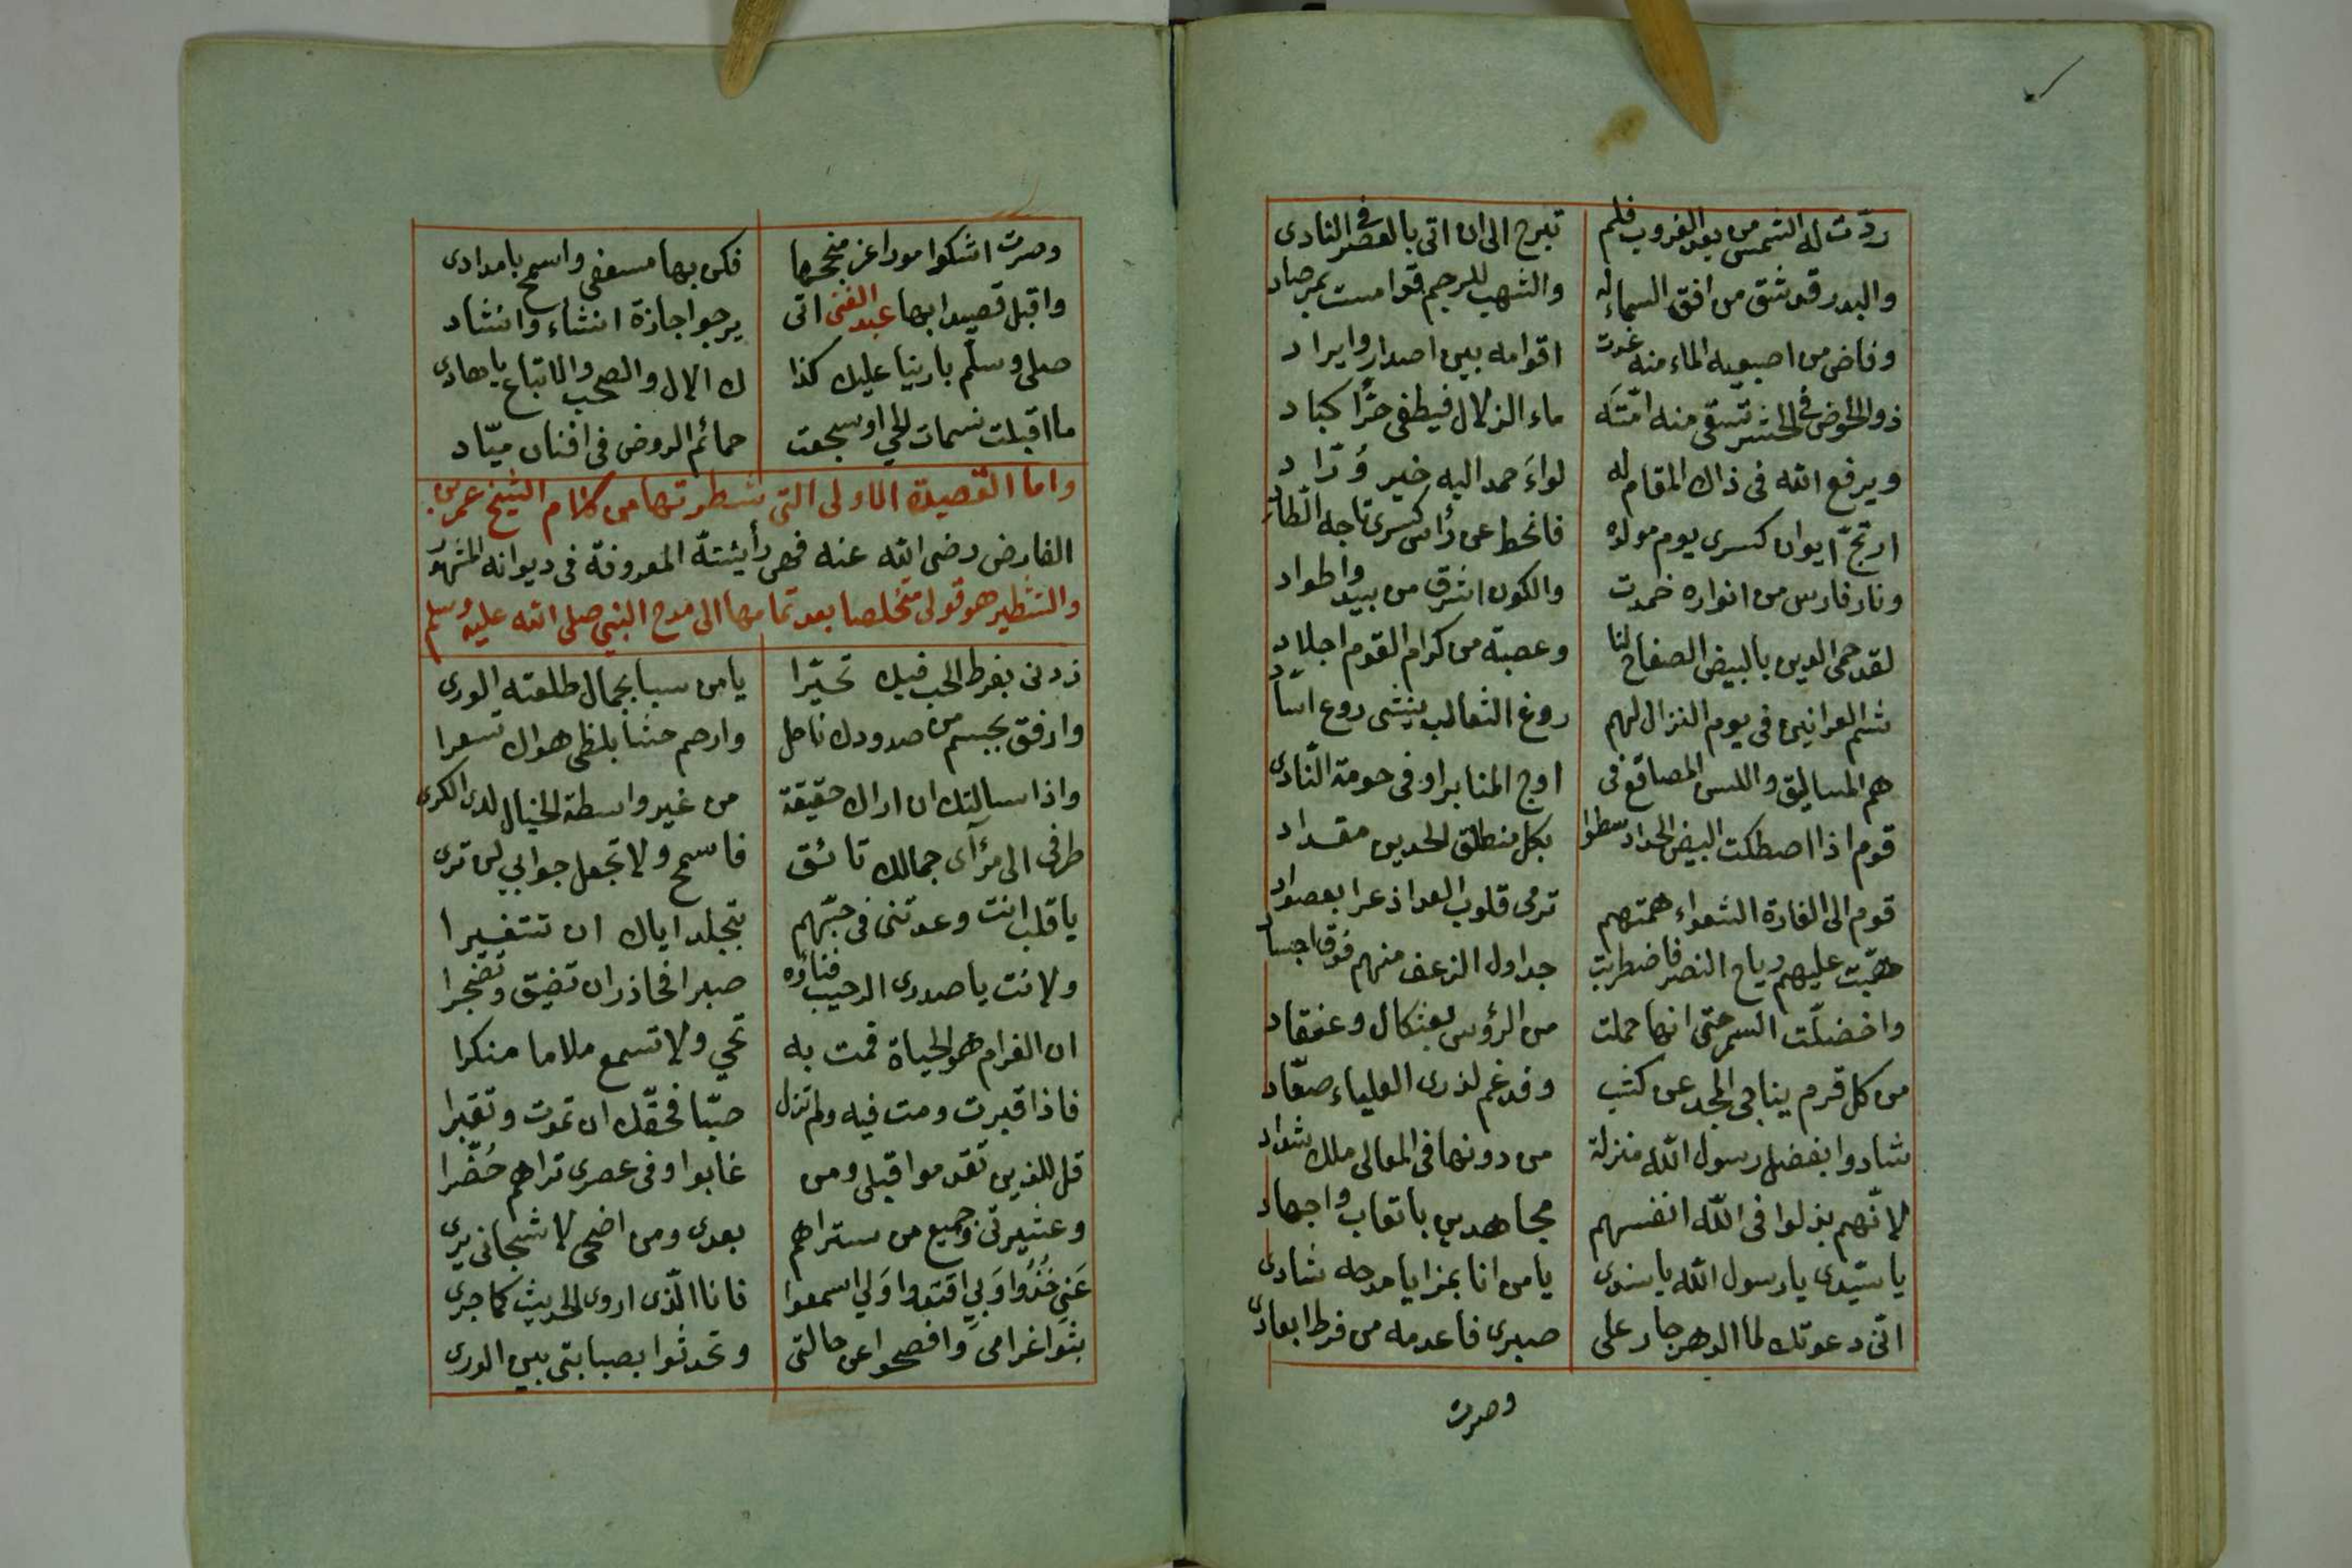 ردّت له الشمس من بعد الغروب فلم تبرح الى ان اتى بالعصر فى النادى
والبدر قد شق من افق السماء له والشهب للرجم قد امست بمرصاد
وفاض من اصبعيه الماء منه غدت اقوامه بين اصدار وايراد
ذو الحوض فى الحشر تسقى منه امّته ماء الزلال فيطفى حرّ اكباد
ويرفع الله فى ذاك المقام له لواءَ حمد اليه خير وُرّاد
ارتجّ ايوان كسرى يوم مولده فانحط عن رأس كسرى تاجه
ونار فارس من انواره خمدت والكون اشرق من بيد واطواد
لقد حمى الدين بالبيض الصفاح لنا وعصبة من كرام القوم اجلاد
شم العرانين فى يوم النزال لهم روغ الثعالب ينشى روع
هم المساليق واللسن المصاقع فى اوج المنابر او فى حومة النّادى
قوم اذا اصطكت البيض الحداد سطوا بكل منطلق الحدين مقداد
قوم الى الغارة الشعواء همتهم ترمى قلوب العدا ذعرا
هبّت عليهم رياح النصر فاضطربت جداول الزعف منهم فوق اجساد
واخضلّت السمر حتى انها حملت من الرؤس بعثكال وعنقاد
من كل قرم يناجى المجد عن كثب وفدغم لذرى العلياء صعّاد
شادوا بفضل رسول الله منزلة من دونها فى المعالى ملك شداد
لانّهم بذلوا فى الله انفسهم مجاهدين باتعاب واجهاد
يا سيّدى يا رسول الله يا سندى يا من انا بمزايا مدحه شادى
انّى دعوتك لما الدهر جار على صبرى فاعدمه من فرط ابعادى
وصرت
وصرت اشكوا مورا عز منجحها فكن بها مسعفى واسمح بامدادى
واقبل قصيدا بها عبد الغنى اتى يرجو اجازة انشاء وانشاد
صلى وسلّم بارينا عليك كذا ك الال والصحب والاتباع يا هادى
ما اقبلت نسمات الحي او سجعت حمائم الروض فى افنان ميّاد
واما القصيدة الاولى التى شطرتها من كلام الشيخ عمر بن
الفارض رضى الله عنه فهى رأيئته المعروفة فى ديوانه المشهور
والتشطير هو قولى متخلصا بعد تمامها الى مدح النبى صلى الله عليه وسلم
زدنى بفرط الحب فيك تحيّرا يا من سبا بجمال طلعته الورى
وارفق بجسم من صدودك ناحل وارحم حشا بلظى هواك تسعرا
واذا سالتك ان اراك حقيقة من غير واسطة الخيال لدى الكرى
طرفى الى مرآى جمالك تائق فاسمح ولا تجعل جوابي لن ترى
يا قلب انت وعدتنى فى حبّهم بتجلد اياك ان تتغيرا
ولانت يا صدرى الرحيب فناؤه صبرا فحاذر ان تضيق وتضجرا
ان الغرام هو الحياة فمت به تحي ولا تسمع ملاما منكرا
فاذا قبرت ومت فيه ولم تزل صبّا فحقّك ان تموت وتقبرا
قل للذين تقدموا قبلى ومن غابوا وفى عصرى تراهم حُضّرا
وعشيرتى وجميع من ستراهم بعدى ومن اضحى لاشجانى يرى
عَنى خُذُوا وَبي اقتدوا وَلي اسمعوا فانا الّذى اروى الحديث كما جرى
بثوا غرامى وافصحوا عن حالتى وتحدثوا بصبابتى بين الورى